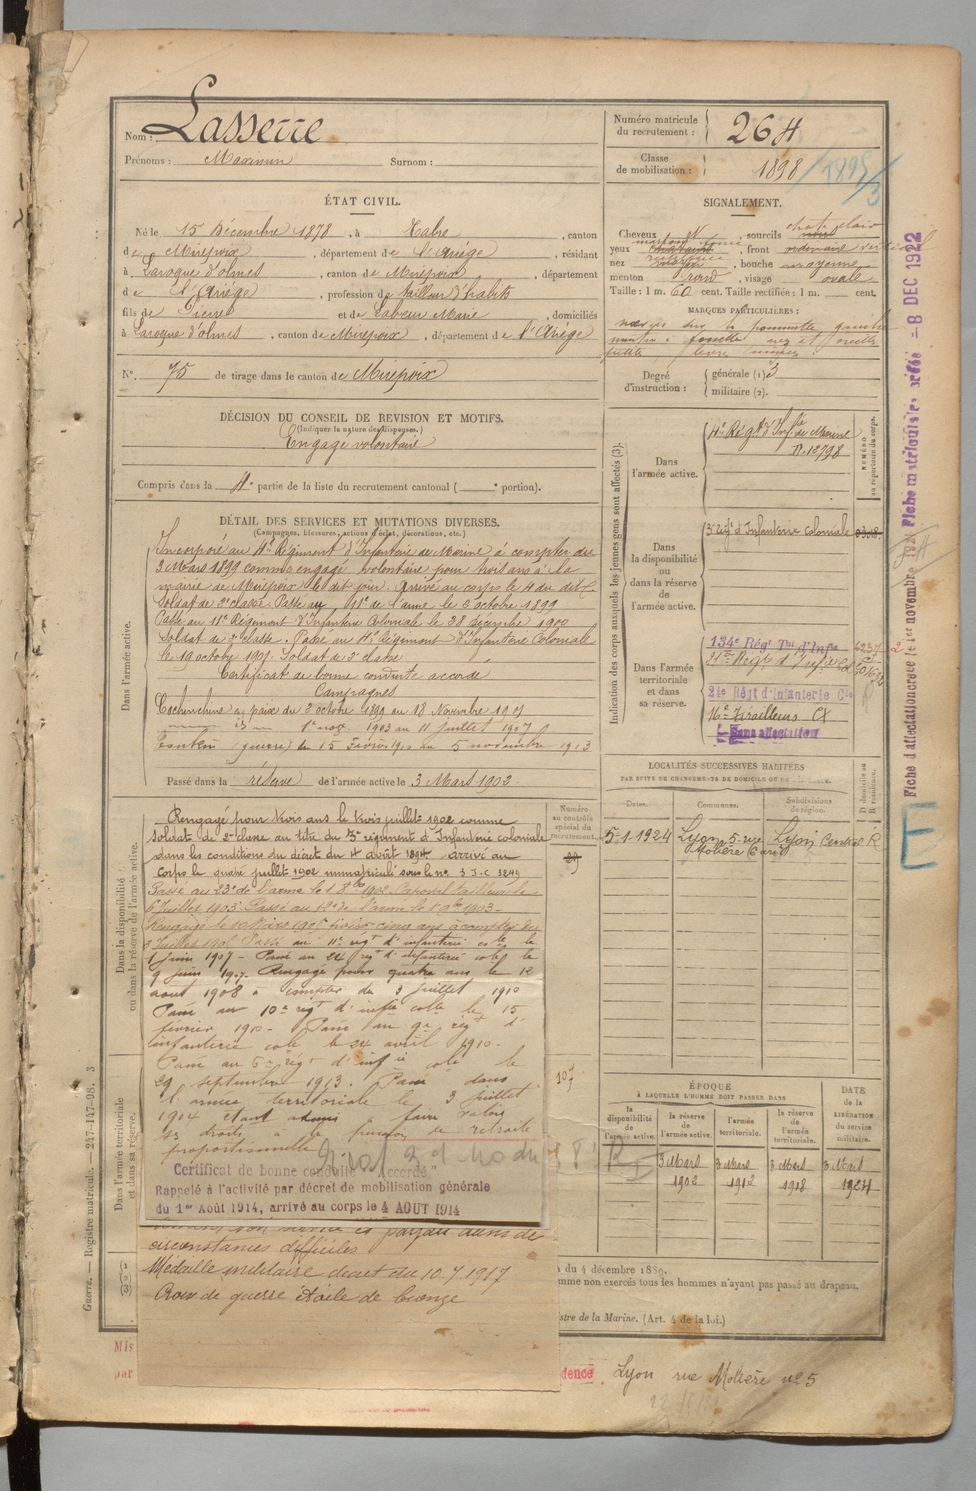 Nom : Lasserre
Prénoms : Maximin Surnom :
ÉTAT CIVIL.
Né le 15 Décembre 1878, à Tabre, canton
de Mirepoix, département de l'Ariège, résidant
à Laroque d'olmes, canton de Mirepoix, département
de l'Ariège, profession de tailleur d'habits
fils de Pierre et de Marie, domiciliés
à Laroque d'olmes, canton de Mirepoix, département de l'Ariège
N°. 75 de tirage dans le canton de Mirepoix
DÉCISION DU CONSEIL DE REVISION ET MOTIFS.
(Indiquer la nature des dispenses.)
Engagé volontaire
Compris dans la 4e partie de la liste du recrutement cantonal ( e portion).
DÉTAIL DES SERVICES ET MUTATIONS DIVERSES.
(Campagnes, blessures, actions d'éclat, décorations, etc.)
Dans l'armée active.
Incorporé au 4e Régiment d'Infanterie de Marine à compter du
3 Mars 1899 comme engagé volontaire pour trois ans à la
mairie de Mirepoix le dit jour. Arrivé au corps le 4 du dit.
Soldat de 2e classe. Passé au 11e de l'arme le 3 octobre 1899
Passé au 11e Régiment d'Infanterie Coloniale le 28 décembre 1900
Soldat de 2e classe. Passé au 4e Régiment d'Infanterie Coloniale
le 19 octobre 1901. Soldat de 2e classe
Certificat de bonne conduite accordé
Campagnes
Cochinchine en paix du 3 octobre 1899 au 18 Novembre 1901
1er nov 1903 au 11 juillet 1907
Tonkin (guerre) du 15 Février 1910 au 5 novembre 1913
Passé dans la réserve de l'armée active le 3 Mars 1902.
Dans la disponibilité
ou dans la réserve de l'armée active.
Rengagé pour trois ans le trois juillet 1902 comme
soldat de 2e classe au titre du 5e régiment d'Infanterie coloniale
dans les conditions du décret du 4 août 1894 arrivé au
corps le quatre juillet 1902 immatriculé sous le no. 3 J.C 3249
Passé au 23e de l'arme le 1 8bre 1902. Caporal tailleur le
6 Juillet 1903. Passé au 12e de l'arme le 1 9bre 1903.
Rengagé le Mars 1905 pour cinq ans à compter du
3 Juillet 1905 Passé au 11e régt d'infanterie cole le
1 Juin 1907 - Passé au 24 régt d'infanterie cole le
9 Juin 1907. Rengagé pour quatre ans le 12
aout 1908 à compter du 3 Juillet 1910
Passé au 10e régt d'infie cole le 15
février 1910 - Passé au 9e régt d'
infanterie cole le 24 avril 1910.
Passé au 5e régt d'infie cole le
29 septembre 1913. Passé dans
l'armée territoriale le 3 juillet
1914 étant admis à faire valoir
ses droits à la pension de retraite
proportionnelle
Certificat de bonne conduite "Accordé"
Rappelé à l'activité par décret de mobilisation générale
du 1er Août 1914, arrivé au corps le 4 AOUT 1914
circonstances difficiles
Médaille militaire decret du 10.7.1917
Croix de guerre étoile de bronze
Numéro
au contrôle
spécial du
recrutement.
107
Dans l'armée territoriale
et dans sa réserve.
Guerre. — Registre matricule. — 247-147-98. 3
Numéro matricule
du recrutement : 264
Classe
de mobilisation : 1898
SIGNALEMENT.
Cheveux N, sourcils
yeux, front
nez, bouche moyenne
menton rond, visage ovale
Taille : 1 m. 60 cent. Taille rectifiée : 1 m. cent.
MARQUES PARTICULIÈRES :
Degré
d'instruction :
générale (1) 3
militaire (2).
Indication des corps auxquels les jeunes gens sont affectés (3).
NUMÉRO
au répertoire du corps.
Dans
l'armée active.
4e Régt d'Infie de Marine
12798
Dans
la disponibilité
ou
dans la réserve
de
l'armée active.
3e régt d'Infanterie coloniale
Dans l'armée
territoriale
et dans
sa réserve.
134e Régt Tal d'Infie
24e Régt d'Infanterie Cle
16e Tirailleurs
Sans affectation
LOCALITÉS SUCCESSIVES HABITÉES
PAR SUITE DE CHANGEMENTS DE DOMICILE OU DE RÉSIDENCE.
Dates. Communes. Subdivisions
de région. D domicile ou
R résidence.
5-1-1924 Lyon 5 rue
Molière Lyon Central R
ÉPOQUE
À LAQUELLE L'HOMME DOIT PASSER DANS
la
disponibilité
de
l'armée active.
la réserve
de
l'armée active.
l'armée
territoriale.
la réserve
de
l'armée
territoriale.
DATE
de la
LIBÉRATION
du service
militaire.
3 Mars
1902
3 Mars
1912
3 Mars
1918
3 Mars
1924
du 4 décembre 1889.
omme non exercés tous les hommes n'ayant pas passé au drapeau.
stre de la Marine. (Art. 4 de la loi.)
Mis
par
dence Lyon rue Molière no 5
Fiche d'affectation créée le 1er novembre
Fiche matriculaire créée - 8 DEC 1922
E